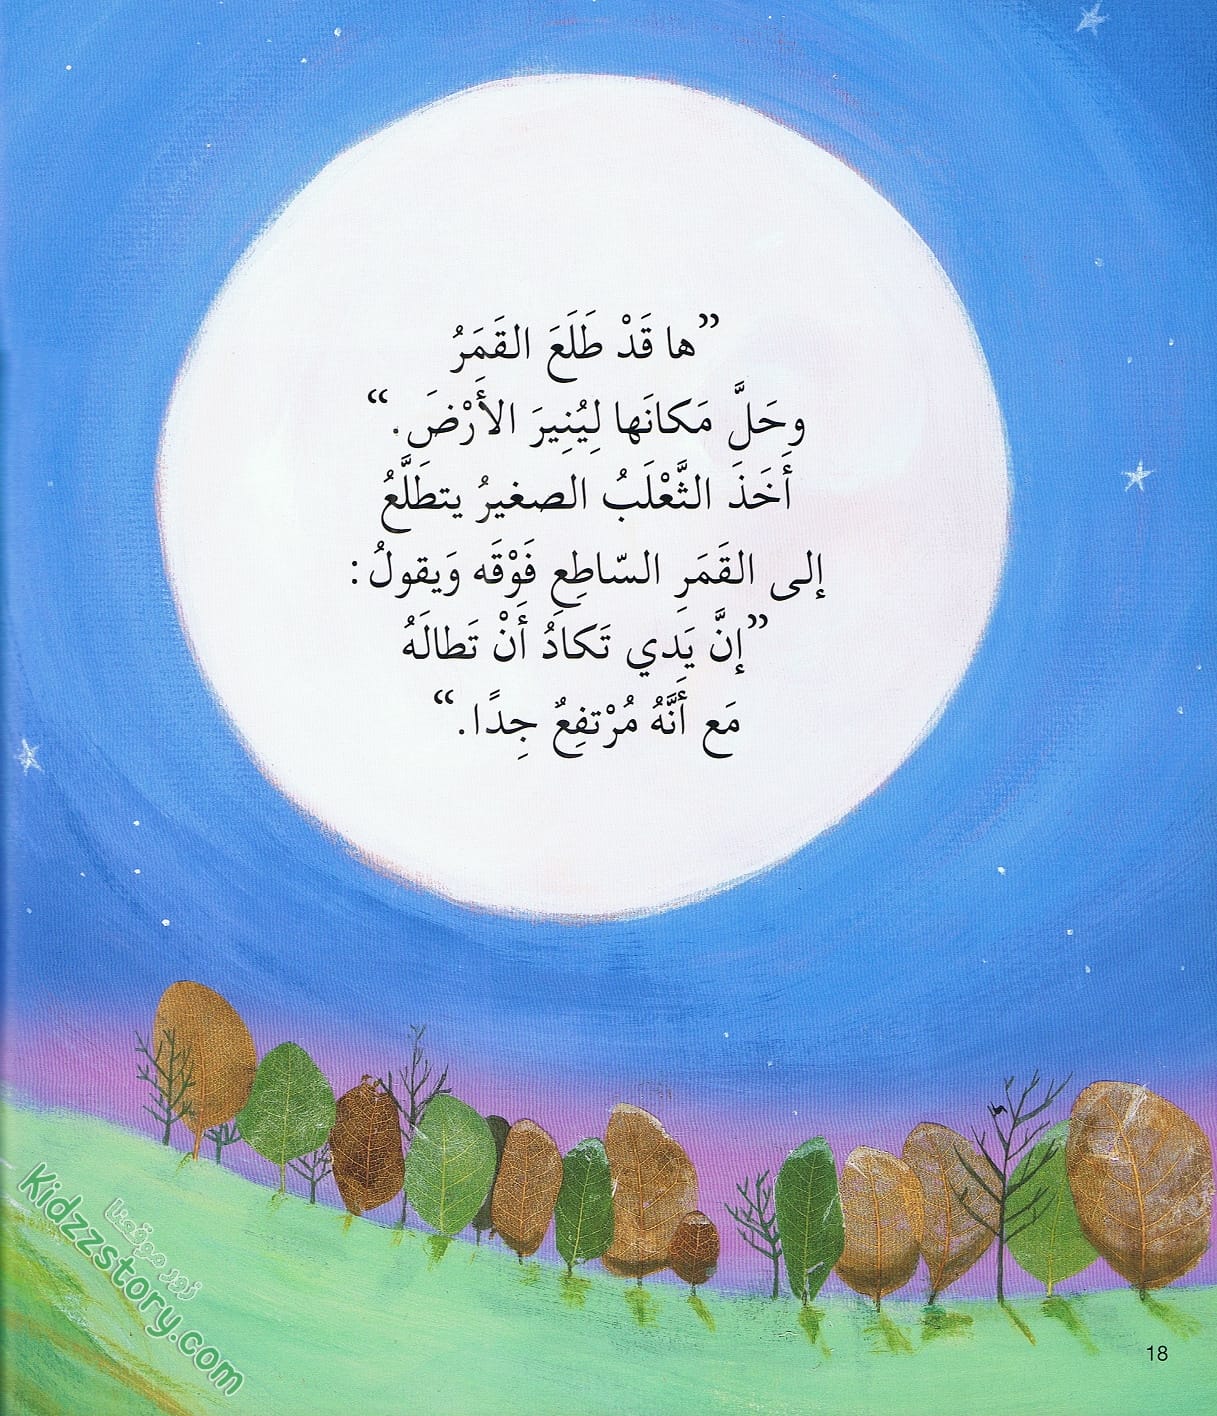 ”ها قَدْ طَلَعَ القَمَرُ
وحَلَّ مَكانَها لِيُنِيرَ الأَرْضَ.“
أَخَذَ الثَّعْلَبُ الصغيرُ يتطَلَّعُ
إلى القَمَرِ السّاطِعِ فَوْقَه وَيقولُ:
”إنَّ يَدي تَكادُ أَنْ تَطالَهُ
مَع أَنَّهُ مُرْتفِعٌ جِدًا.“
زوروا موقعنا
Kidzzstory.com
18